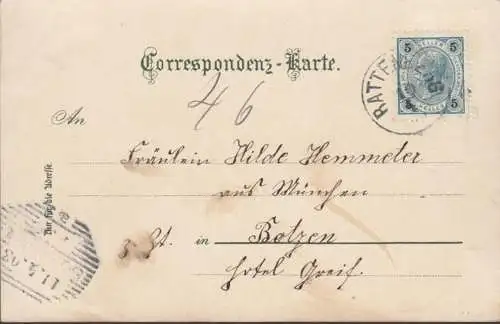 Correspondenz-Karte.
5 5
HELLER
5 5
RATTEN
46
An
Fräulein Hilde Hemmeter
aus München
z. Zt. in Bolzen
Hotel Greif.
Nur für die Adresse.
11.2.03